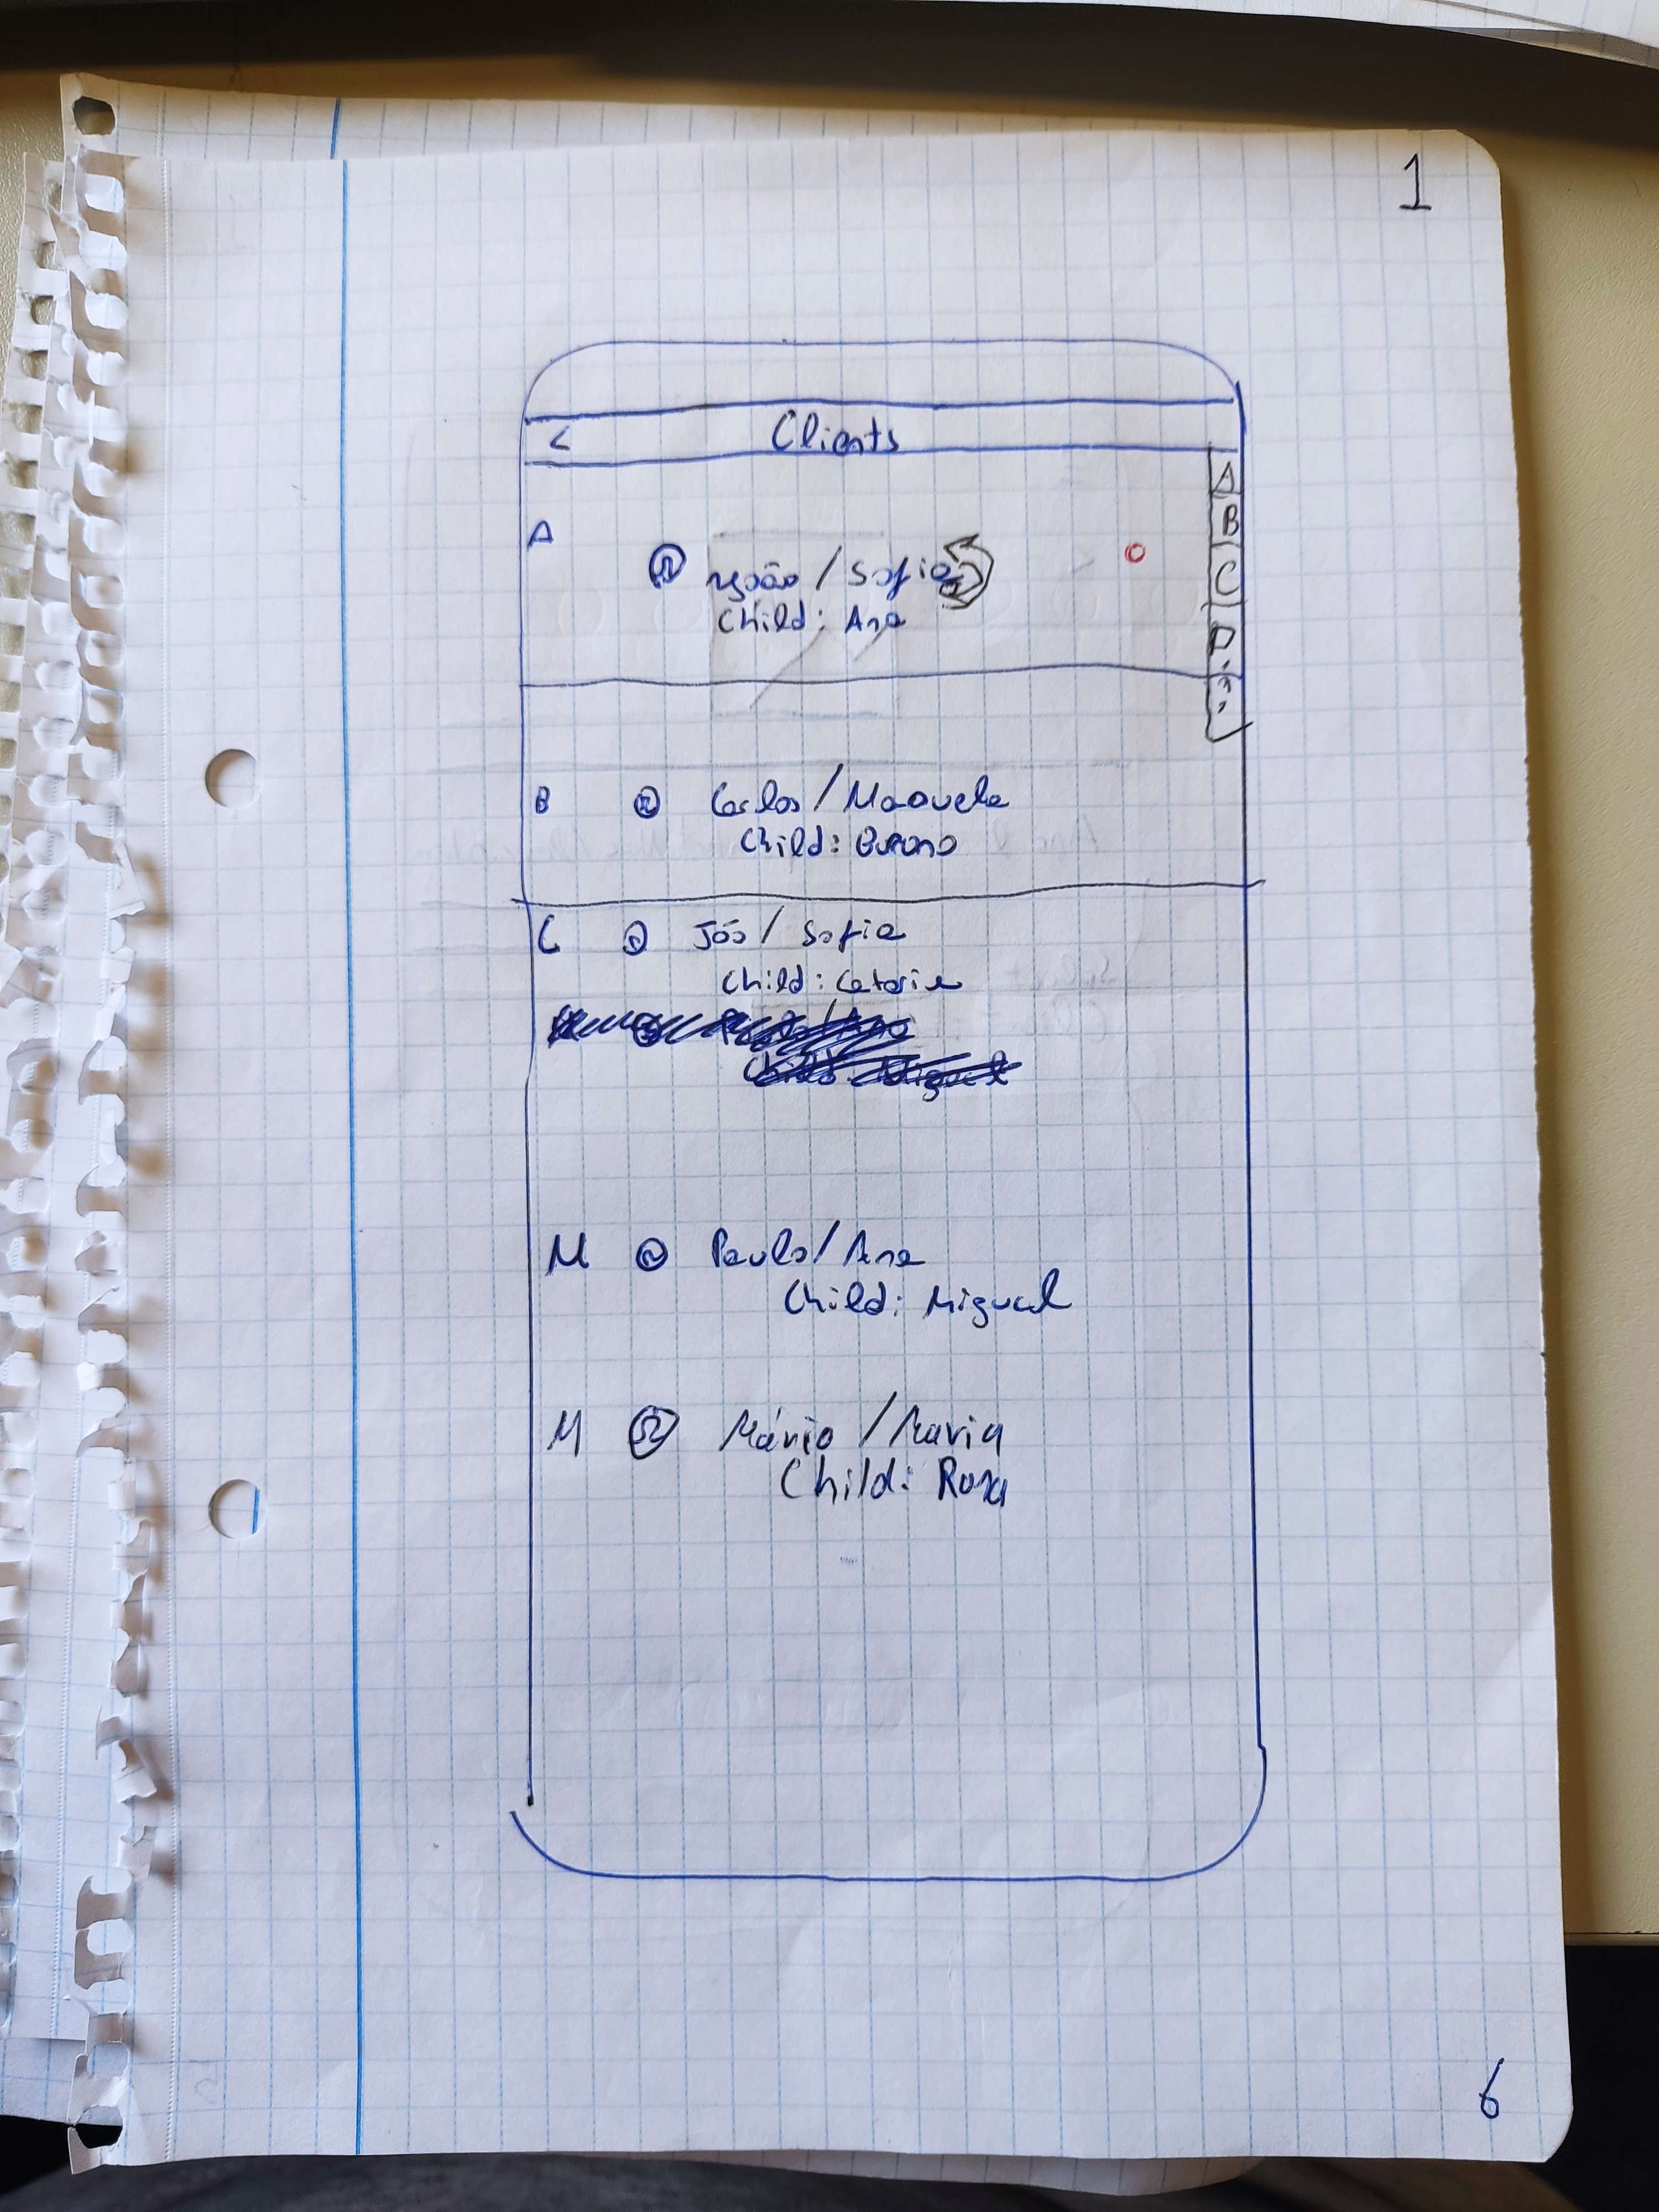 1
< Clients
A
B
C
D
A
João / Sofia
Child: Ana
B Carlos / Manuela
Child: Bruno
C Jõo / Sofia
Child: Catarina
M Paulo / Ana
Child: Miguel
M Mário / Maria
Child: Rosa
6